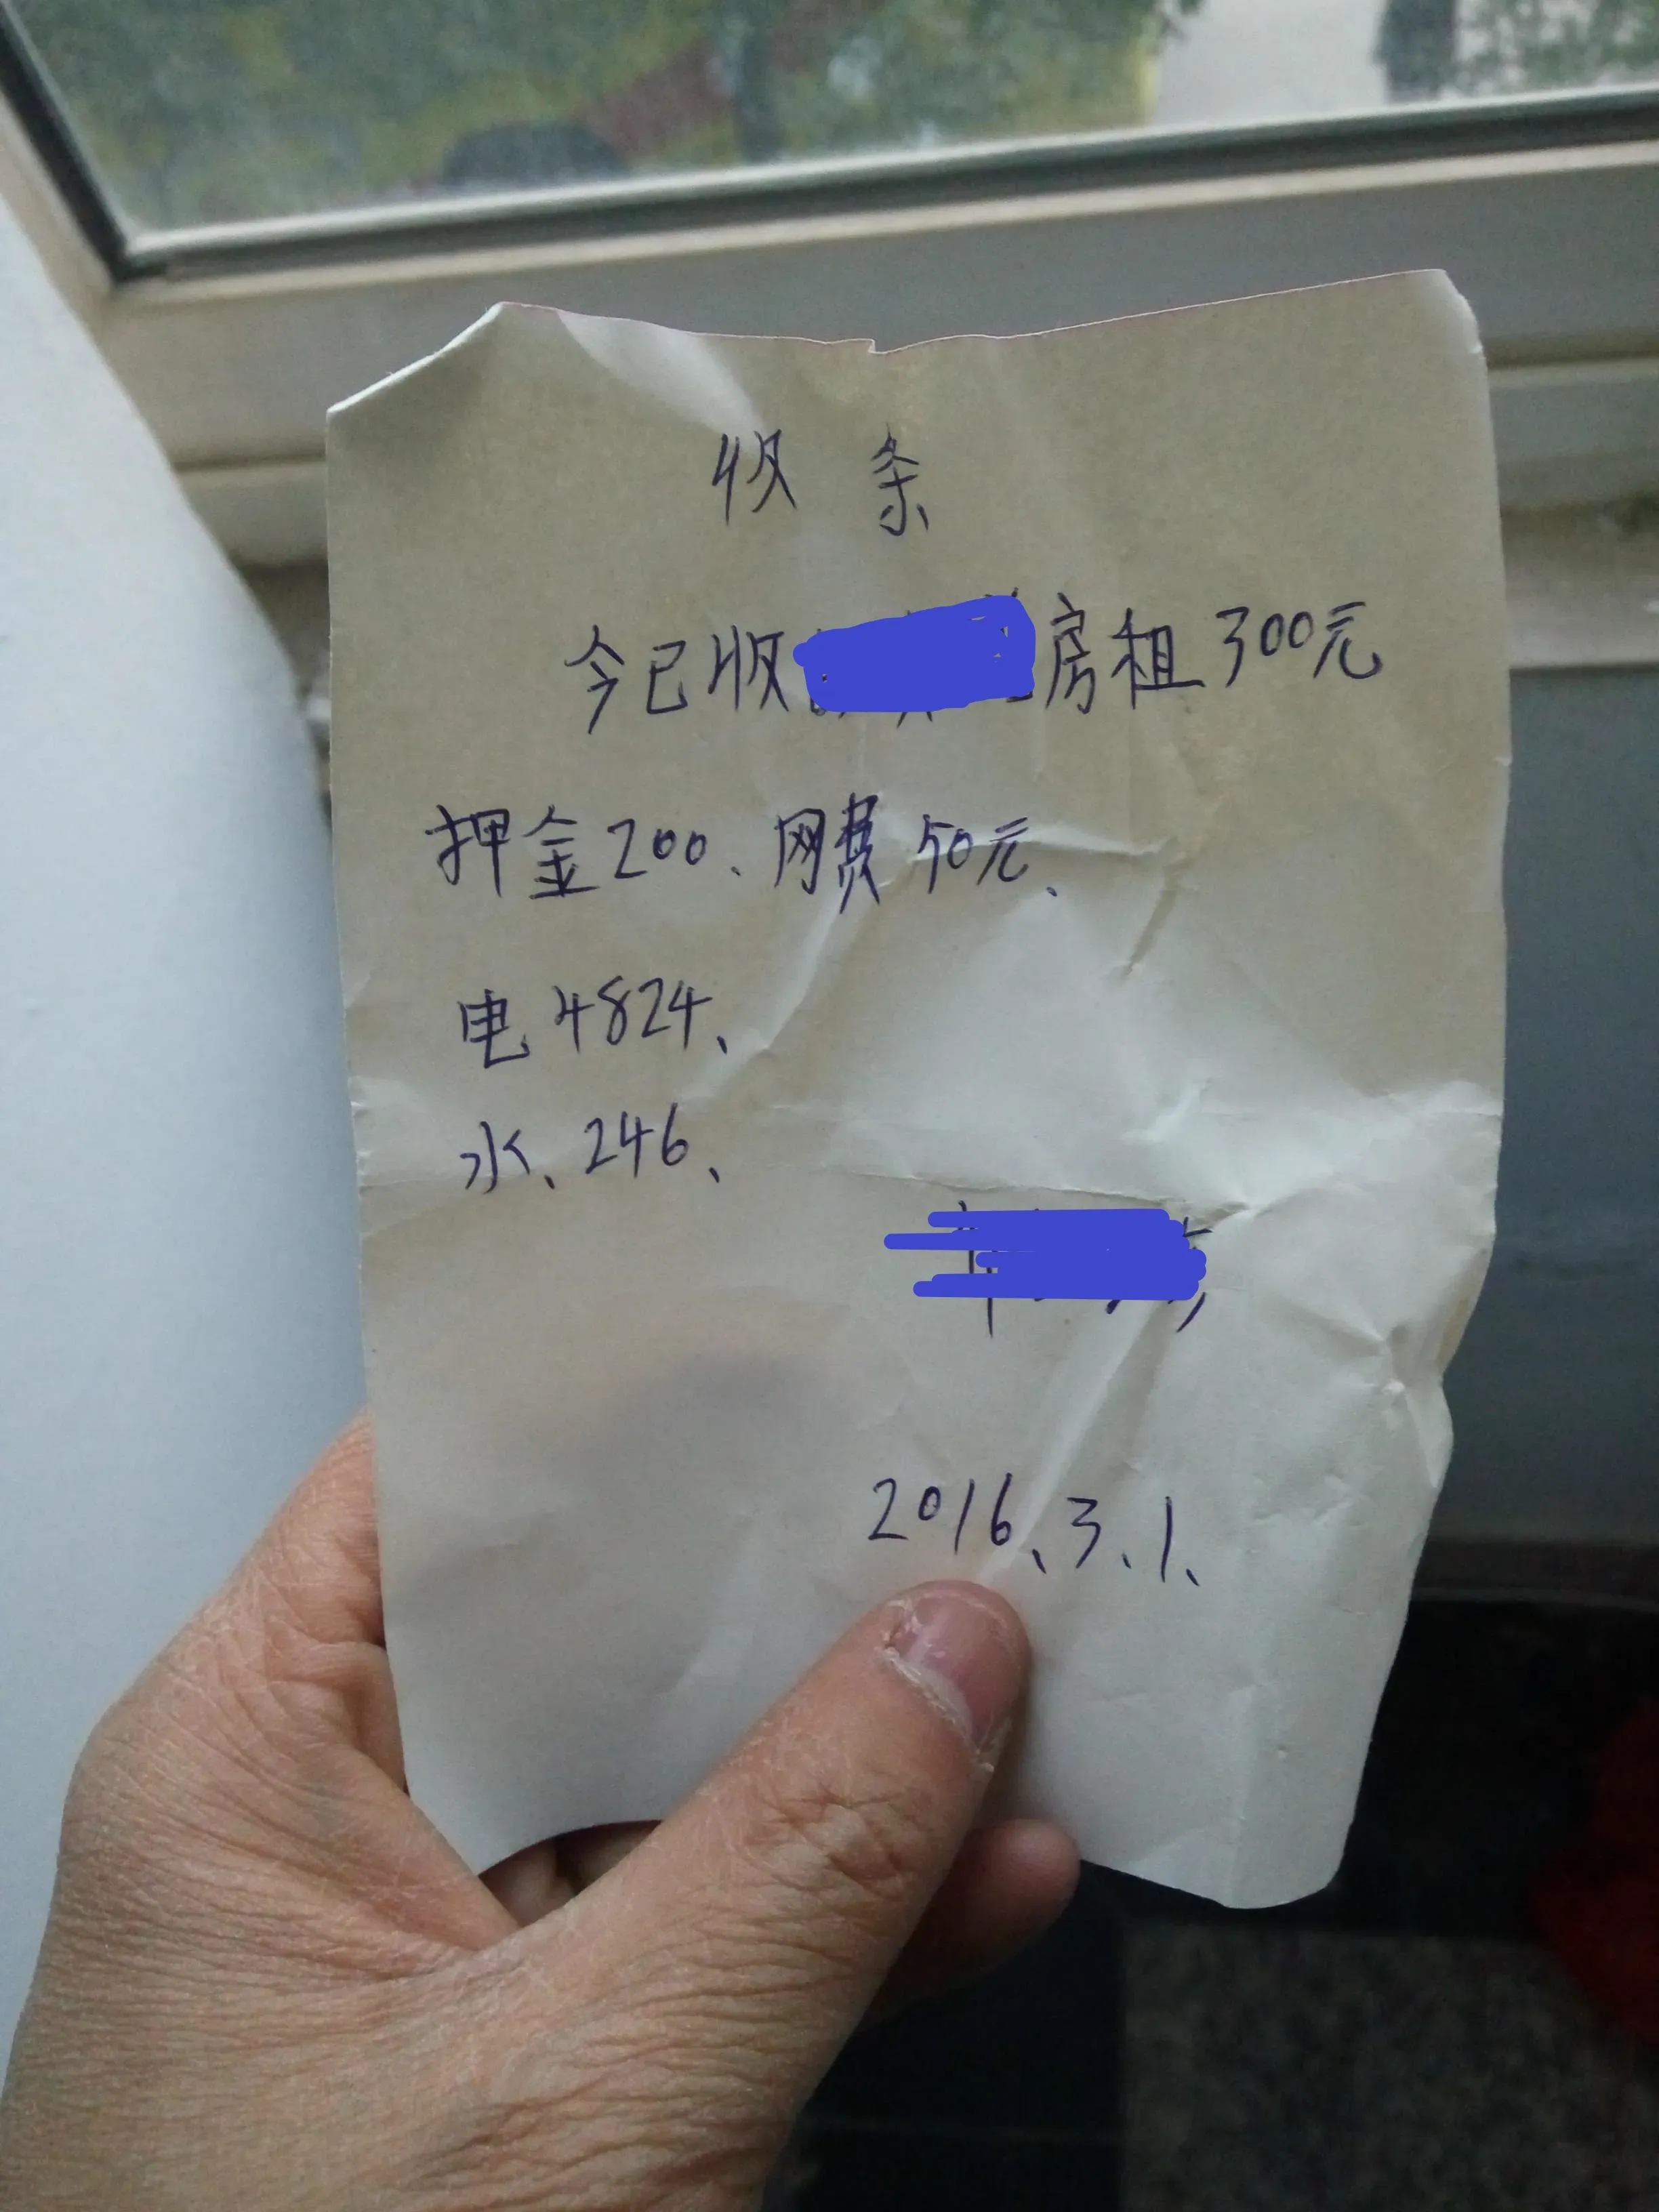 收 条
今已收 房租300元
押金200、网费50元、
电4824、
水、246、
2016、3、1、